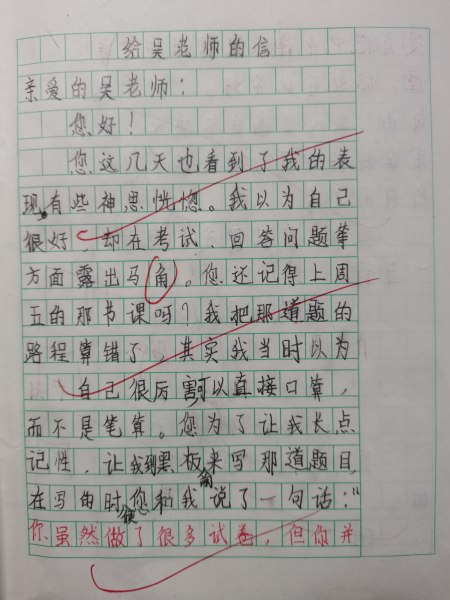 给吴老师的信
亲爱的吴老师：
您好！
您这几天也看到了我的表
现，有些神思恍惚。我以为自己
很好，却在考试、回答问题等
方面露出马角。您还记得上周
五的那节课吗？我把那道题的
路程算错了，其实我当时以为
自己很厉害可以直接口算，
而不是笔算。您为了让我长点
记性，让我到黑板来写那道题目，
在写的时候您和我俞说了一句话：“
你虽然做了很多试卷，但你并